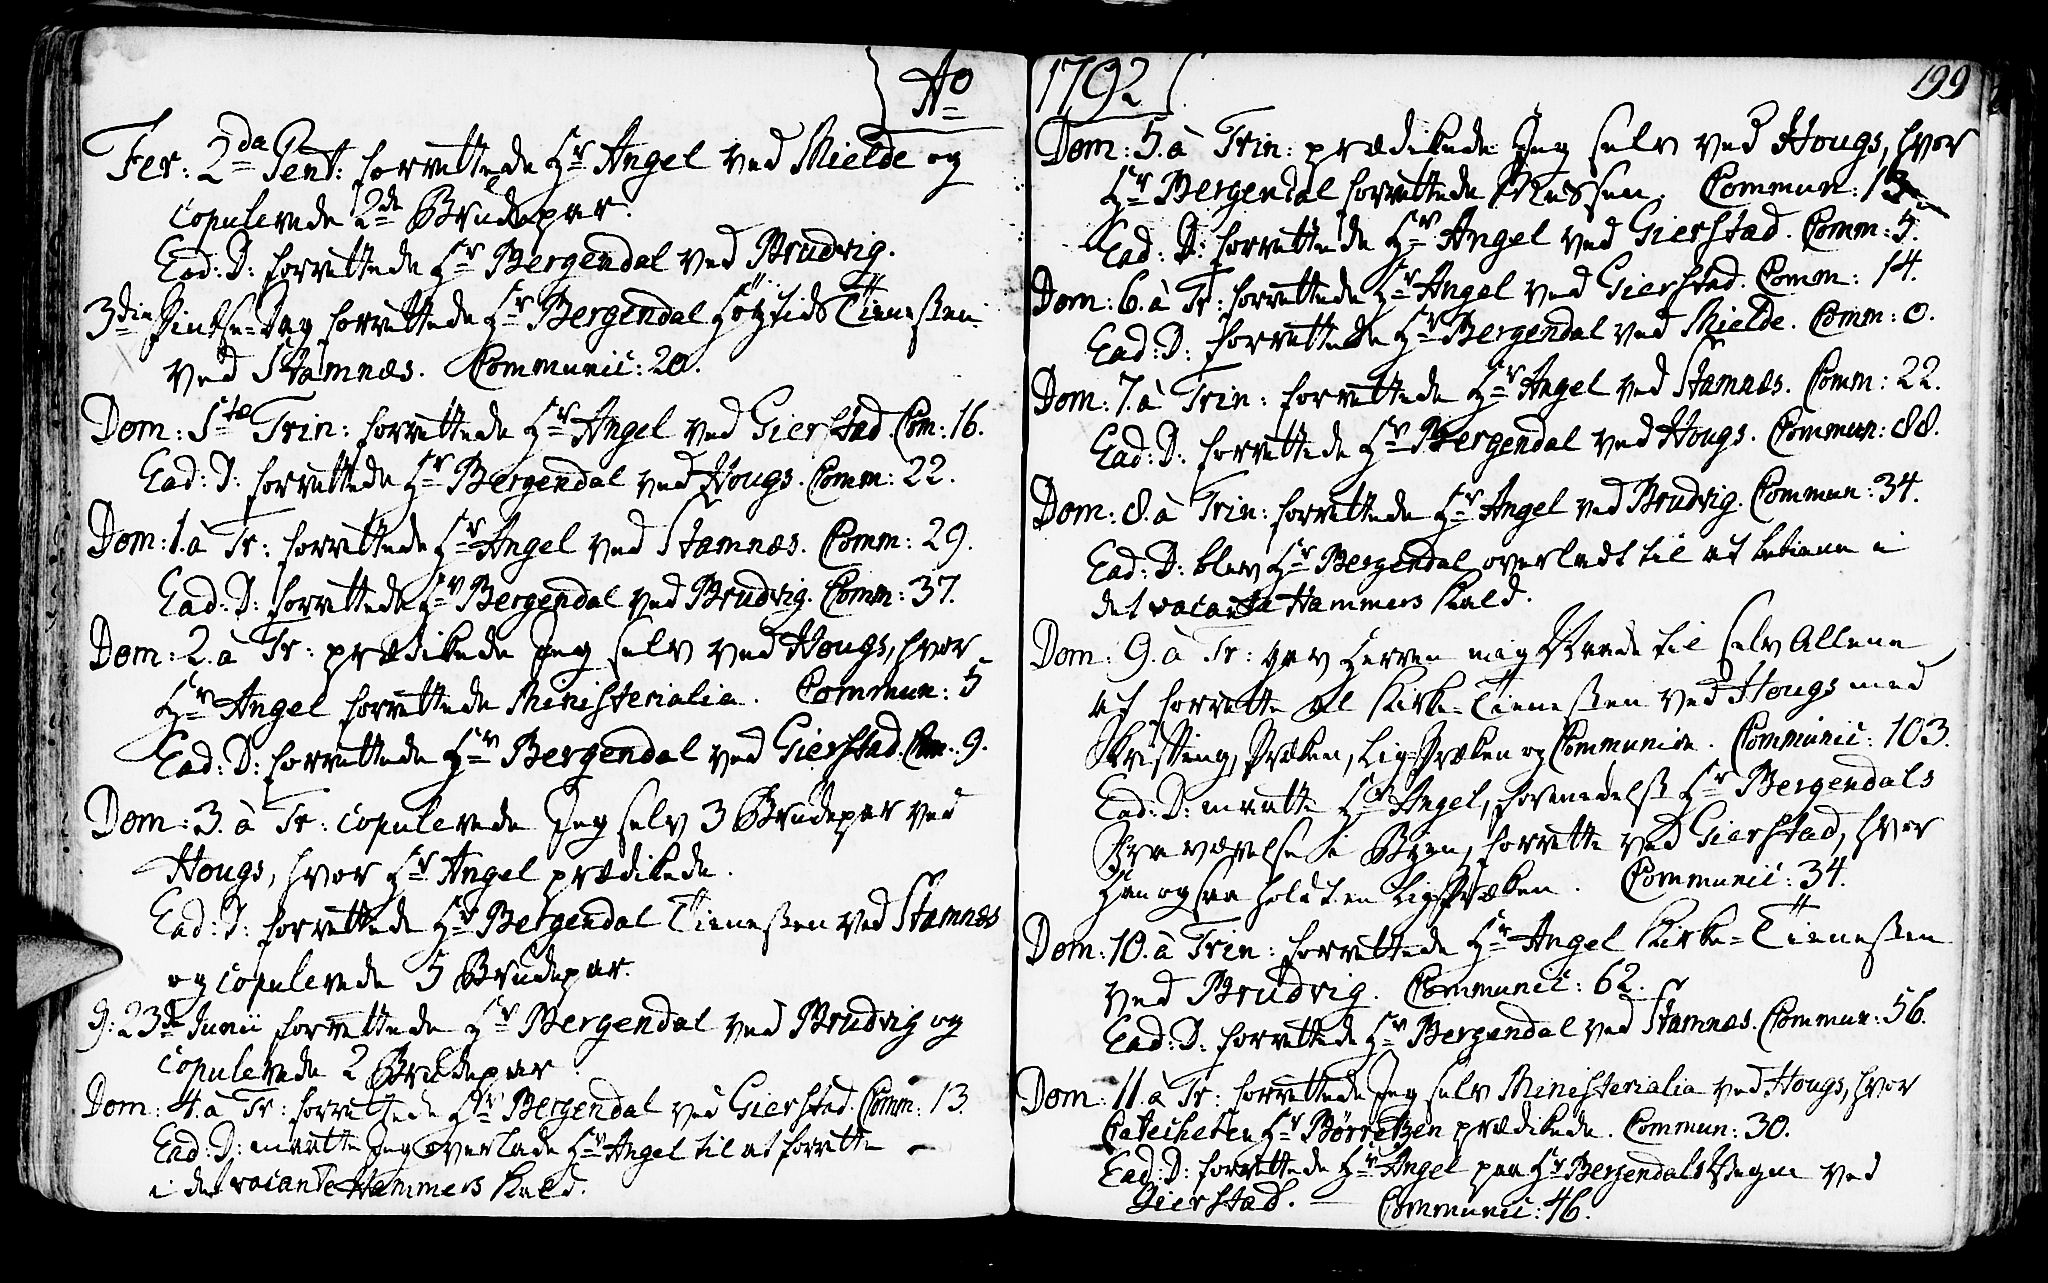 Ao
Fer: 2da Pent: forrettede Hr Angel ved Mielde og
copulerede 2de Brudepar.
Ead: D: forrettede Hr Bergendal ved Brudvig.
3die Pintse-Dag forrettede Hr Bergendal Høytids Tienesten
ved Stamnæs. Communic: 20.
Dom: Stæ Trin: forrettede Hr Angel ved Gierstad. Com: 16.
Ead: D: forrettede Hr Bergendal ved Hougs. Comm: 22.
Dom: 1. à Tr: forrettede Hr Angel ved Stamnæs. Comm: 29.
Ead: D: forrettede Hr Bergendal ved Brudvig. Comm: 37.
Dom: 2. à Tr: prædikede Jeg selv ved Hougs, hvor
Hr Angel forrettede Ministerialia. Commun: 5
Ead: D: forrettede Hr Bergendal ved Gierstad. Com: 9.
Dom: 3. à Tr: copulerede Jeg selv 3 Brudepar ved
Hougs, hvor Hr Angel prædikede.
Ead: D: forrettede Hr Bergendal Tienesten ved Stamnæs
og copulerede 5 Brudepar.
D: 23de Junii forrettede Hr Bergendal ved Brudvig og
copulerede 2 Brudepar.
Dom: 4. à Tr: forrettede Hr Bergendal ved Gierstad. Comm: 13.
Ead: D: maatte Jeg overlade Hr Angel til at forrette
i det vacante Hammers Kald.
1792
199
Dom: 5. à Trin: prædikede Jeg selv ved Hougs, hvor
Hr Bergendal forrettede Messen. Commun: 13
Ead: D: forrettede Hr Angel ved Gierstad. Comm: 5.
Dom: 6. à Tr: forrettede Hr Angel ved Gierstad. Comm: 14.
Ead: D: forrettede Hr Bergendal ved Mielde. Comm: 0.
Dom: 7. à Trin: forrettede Hr Angel ved Stamnæs. Comm: 22.
Ead: D: forrettede Hr Bergendal ved Hougs. Commun: 88.
Dom: 8. à Trin: forrettede Hr Angel ved Brudvig. Commun: 34.
Ead: D: blev Hr Bergendal overladt til at betiene i
det vacante Hammers Kald.
Dom: 9. à Tr: gav Herren mig Naade til selv Allene
at forrette al Kirke-Tienesten ved Hougs med
Skrifting, Præken, Lig-Præken og Communion. Communic: 103.
Ead: D: maatte Hr Angel, formedelst Hr Bergendals
Fraværelse i Byen, forrette ved Gierstad, hvor
Han ogsaa holdt en Ligpræken. Communic: 34.
Dom: 10. à Trin: forrettede Hr Angel Kirke-Tienesten
ved Brudvig. Communic: 62.
Ead: D: forrettede Hr Bergendal ved Stamnæs. Commun: 56.
Dom: 11. à Tr: forrettede Jeg selv Ministerialia ved Hougs, hvor
Catecheten Hr Børretzen prædikede. Commun: 30.
Ead: D: forrettede Hr Angel paa Hr Bergendals Vegne ved
Gierstad. — Communic: 46.